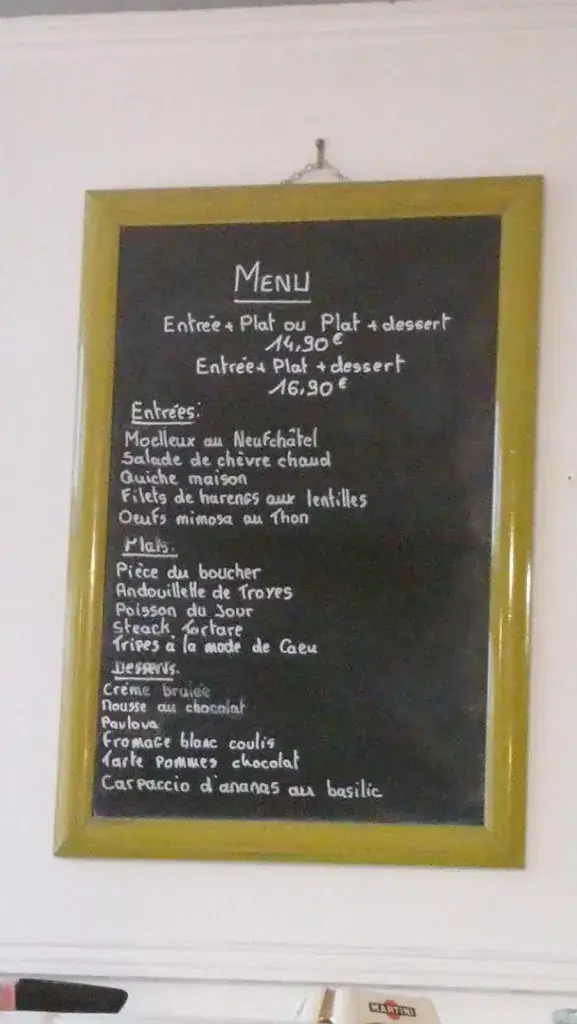 MENU
Entrée + Plat ou Plat + dessert
14,90€
Entrée + Plat + dessert
16,90€
Entrées:
Moelleux au Neufchâtel
Salade de chèvre chaud
Quiche maison
Filets de harengs aux lentilles
Oeufs mimosa au Thon
Plats.
Pièce du boucher
Andouillette de Troyes
Poisson du Jour
Steack Tartare
Tripes à la mode de Caeu
Desserts.
Crème brulée
Mousse au chocolat
Pavlova
Fromage blanc coulis
Tarte pommes chocolat
Carpaccio d'ananas au basilic
MARTINI